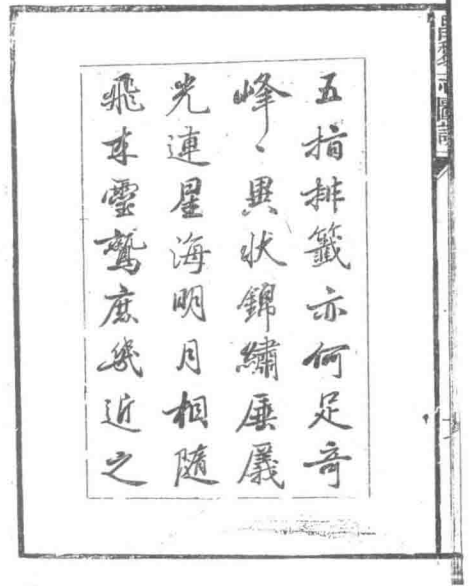 五指排籤亦何足奇
峰〻異状錦繡厜㕒
光連星海明月相隨
飛来靈鷲庶幾近之